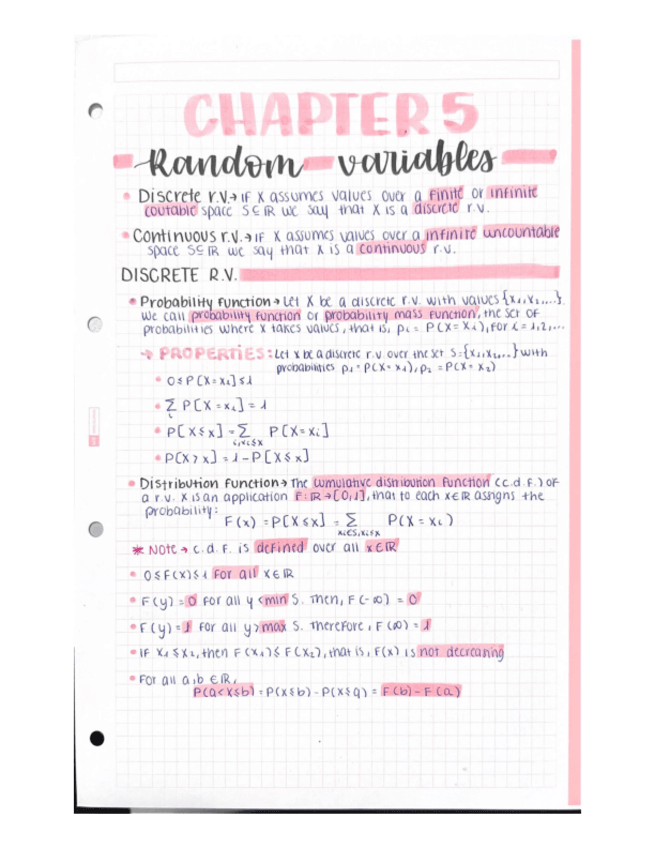 CHAPTER 5
Random variables
• Discrete r.v.→ IF X assumes values over a finite or infinite
coutable space S⊆ℝ we say that X is a discrete r.v.
• Continuous r.v.→ IF X assumes values over a infinite uncountable
space S⊆ℝ we say that X is a continuous r.v.
DISCRETE R.V.
• Probability Function → Let X be a discrete r.v. with values {x₁,x₂,...}.
We call probability function or probability mass function, the set of
probabilities where X takes values, that is, pᵢ = P(X=xᵢ), for i=1,2,...
→ PROPERTIES: Let X be a discrete r.v over the set S={x₁,x₂,...} with
probabilities p₁=P(X=x₁), p₂=P(X=x₂)
• 0≤P[X=xᵢ]≤1
• ∑ᵢ P[X=xᵢ] = 1
• P[X≤x] = ∑ i,xᵢ≤x P[X=xᵢ]
• P[X>x] = 1-P[X≤x]
• Distribution Function → The cumulative distribution function (c.d.f.) of
a r.v. X is an application F:ℝ→[0,1], that to each x∈ℝ assigns the
probability:
F(x) = P[X≤x] = ∑ xᵢ∈S,xᵢ≤x P(X=xᵢ)
* NOTE → c.d.f. is defined over all x∈ℝ
• 0≤F(x)≤1 for all x∈ℝ
• F(y)=0 for all y<min S. Then, F(-∞) = 0
• F(y)=1 for all y>max S. Therefore, F(∞) = 1
• IF x₁≤x₂, then F(x₁)≤F(x₂), that is, F(x) is not decreaning
• For all a,b∈ℝ,
P(a<X≤b) = P(X≤b) - P(X≤a) = F(b) - F(a)